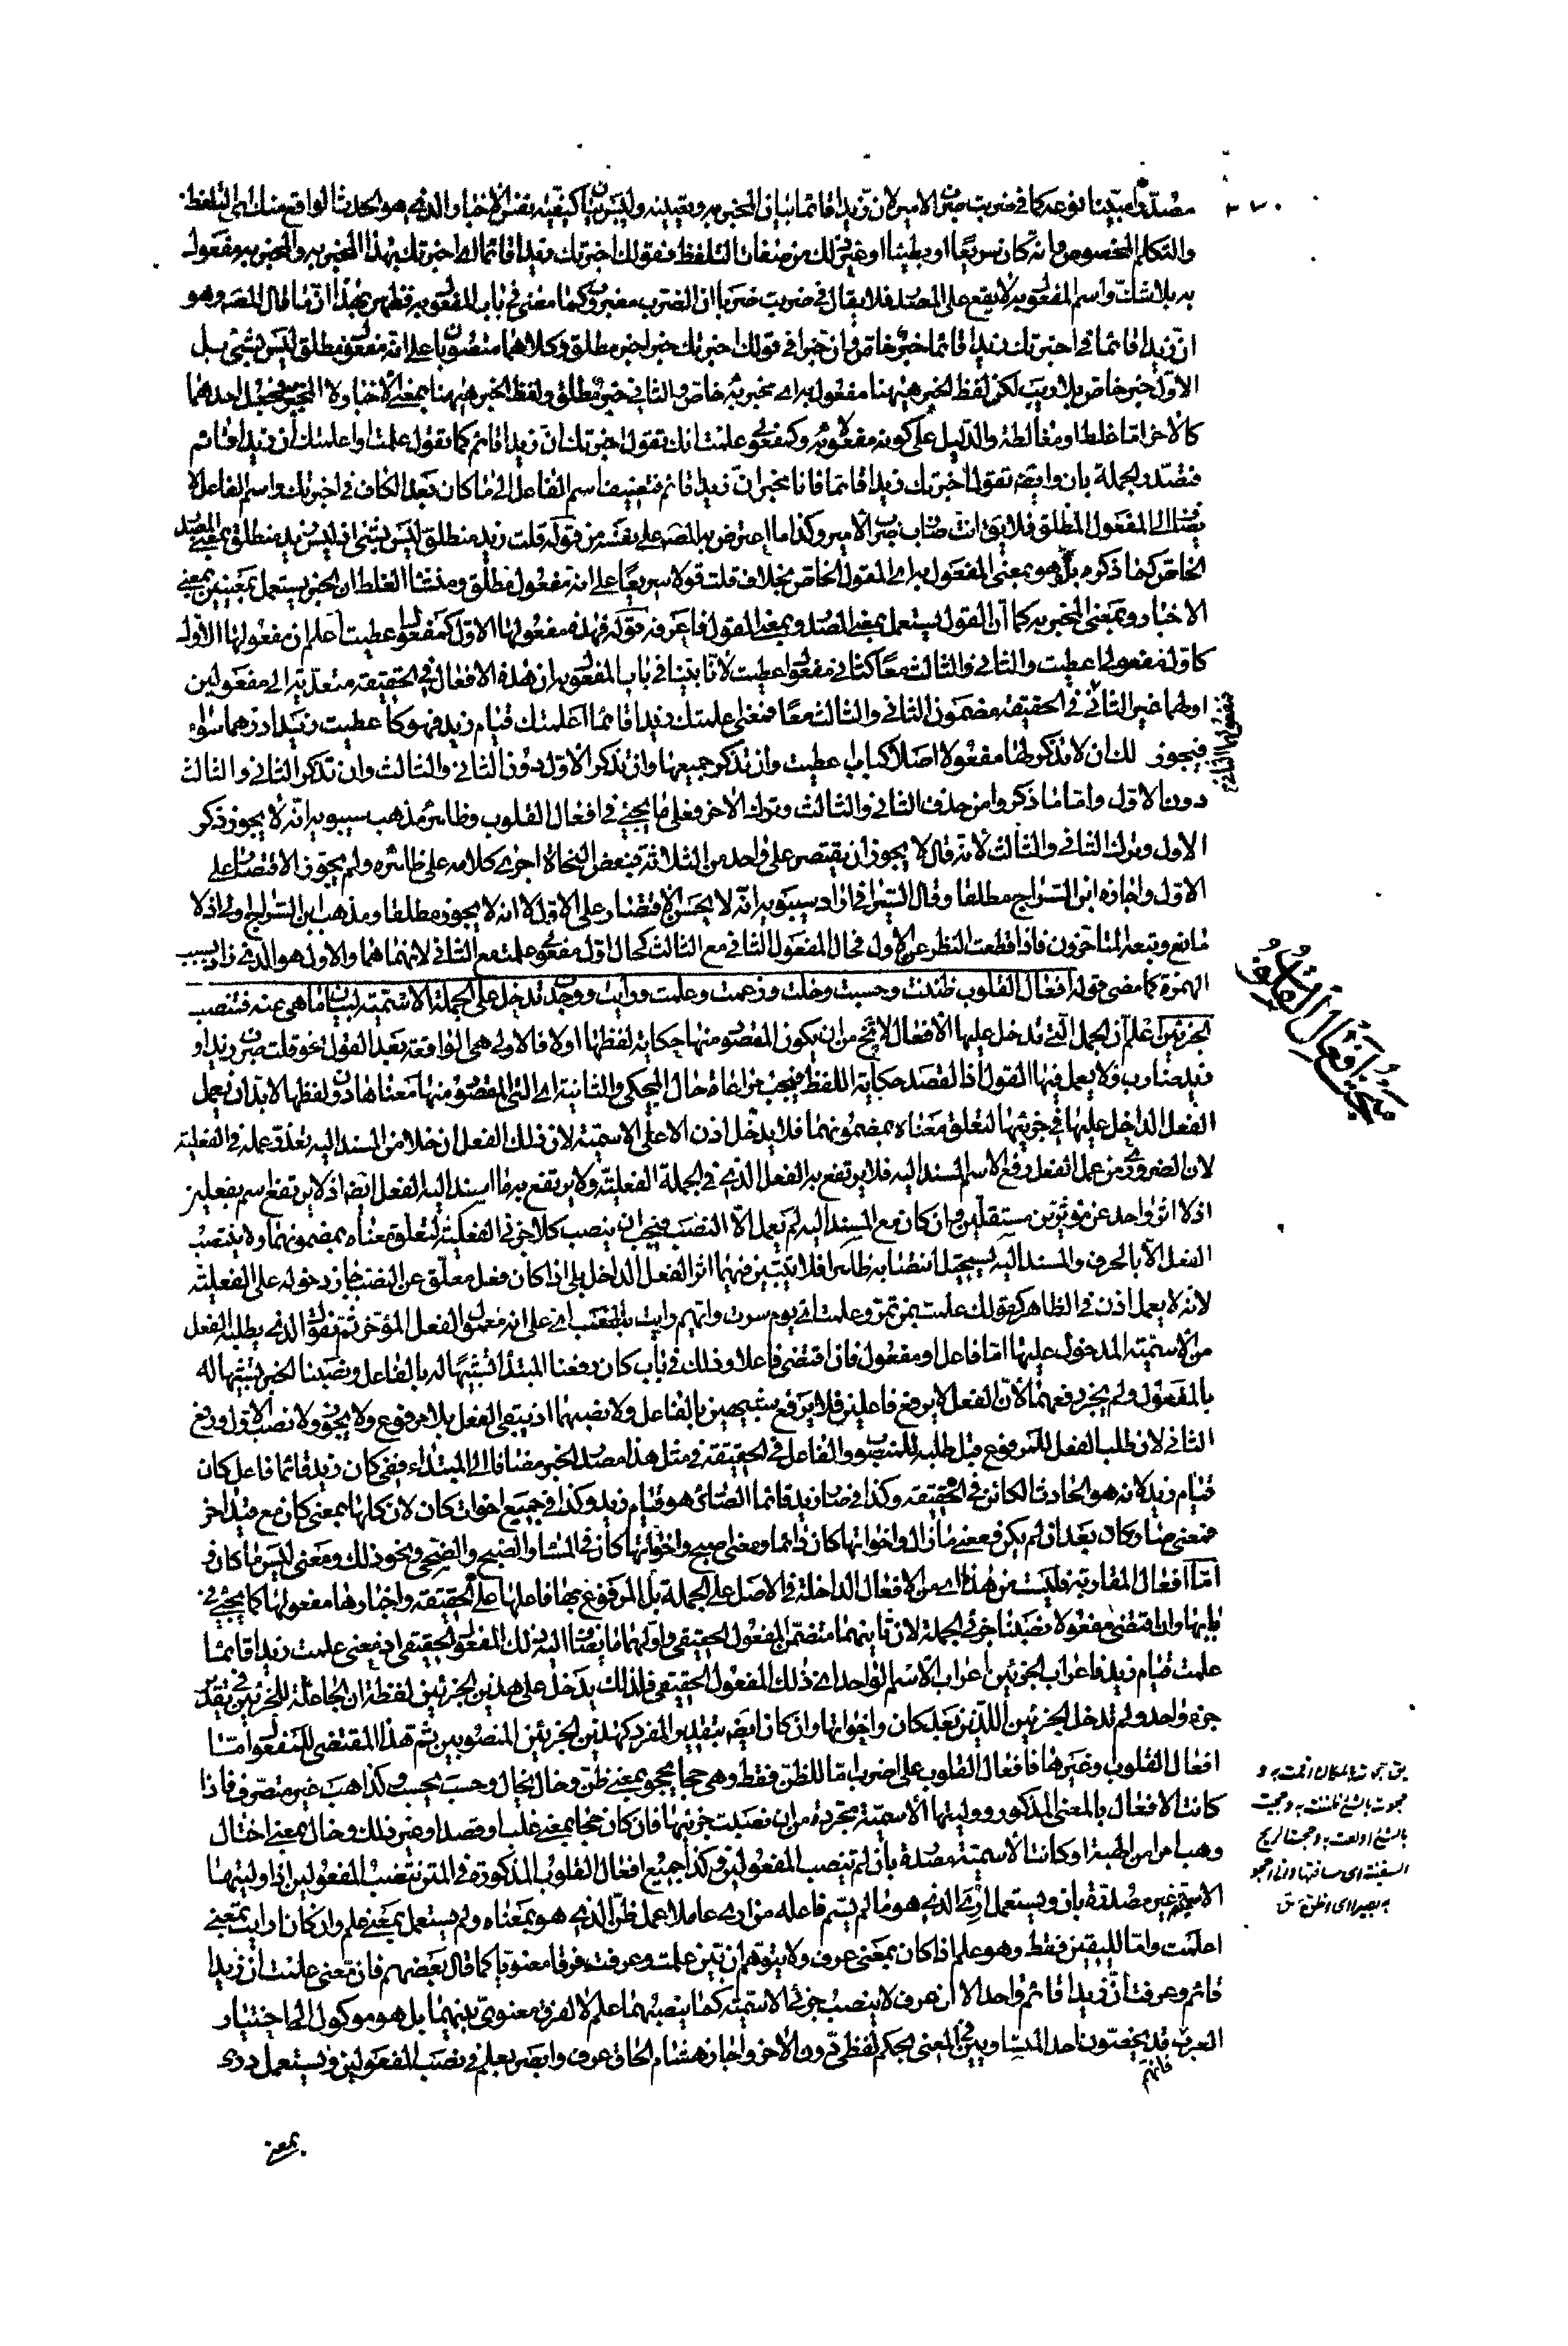 ٣٧٠
مصدرا مبينا نوعه كما في ضربت ضرب الامير لان زيدا قائما بيان المخبر به وتعيينه وليس بيان كيفية نفس الاخبار الذي هو الحدث الواقع منك اي التلفظ
والتكلم المخصوص وانه كان سريعا او بطيئا او غير ذلك من صفات التلفظ فقولك اخبرتك زيدا قائما اي اخبرتك بهذا المخبر به والمخبر به مفعول
به بلا شك واسم المفعول به لا يقع على المصدر فلا يقال في ضربت ضربا ان الضرب مضروب كما مضى في باب المفعول به فظهر بهذا ان ما قال المصه وهو
ان زيدا قائما في اخبرتك زيدا قائما خبر خاص وان خبرا في قولك اخبرتك خبرا خبر مطلق وكلاهما منصوبان على انه مفعول مطلق ليس بشئ بل
الاول خبر خاص بلا ريب لكن لفظ الخبر هيهنا مفعول به اي مخبر به خاص والثاني خبر مطلق ولفظ الخبر هيهنا بمعنى الاخبار لا المخبر به فجعل احدهما
كالاخر اما غلط او مغالطة والدليل على كونه مفعولا به وكمفعولي علمت انك تقول اخبرتك ان زيدا قائم كما تقول علمت او اعلمتك ان زيدا قائم
فتصدر الجملة بان وايضه تقول اخبرتك زيدا قائما فانا مخبر ان زيدا قائم فتضيف اسم الفاعل الى ما كان بعد الكاف في اخبرتك واسم الفاعل لا
يضاف الى المفعول المطلق فلا يق انت ضارب ضرب الامير وكذا ما اعترض به المصه على نفسه من قوله قلت زيد منطلق ليس بشئ اذ ليس زيد منطلق بمعنى المصدر
الخاص كما ذكره بل هو بمعنى المفعول به اي المقول الخاص بخلاف قلت قولا سريعا على انه مفعول مطلق ومنشأ الغلط ان الخبر يستعمل بمعنيين بمعنى
الاخبار وبمعنى المخبر به كما ان القول يستعمل بمعنى المصدر وبمعنى المقول فاعرفه قوله فهذه مفعولها الاول كمفعول اعطيت اعلم ان مفعولها الاول
كاول مفعولي اعطيت والثاني والثالث معا كثاني مفعولي اعطيت لانا بينا في باب المفعول به ان هذه الافعال في الحقيقة متعدية الى مفعولين
اولهما غير الثاني في الحقيقة مضمون الثاني والثالث معا فمعنى علمتك زيدا قائما اعلمتك قيام زيد فهو كاعطيت زيدا درهما سواء
فيجوز لك ان لا تذكر لها مفعولا اصلا كباب اعطيت وان تذكر جميعها وان تذكر الاول دون الثاني والثالث وان تذكر الثاني والثالث
دون الاول واما ما ذكروا من حذف الثاني والثالث وترك الاخر فعلى ما يجيئ في افعال القلوب وظاهر مذهب سيبويه انه لا يجوز ذكر
الاول وترك الثاني والثالث لانه قال لا يجوز ان يقتصر على واحد من الثلاثة فبعض النحاة اجرى كلامه على ظاهره ولم يجوز الاقتصار على
الاول واجازه ابن السراج مطلقا وقال السيرافي اراد سيبويه انه لا يحسن الاقتصار على الاول لا انه لا يجوز مطلقا ومذهب ابن السراج اولى اذ لا
مانع وتبعه المتأخرون فاذا قطعت النظر عن الاول فحال المفعول الثاني مع الثالث كحال اول مفعولي علمت مع الثاني لانهما هما والاول هو الذي زاد بسبب
الهمزة كما مضى قوله افعال القلوب ظننت وحسبت وخلت وزعمت وعلمت ورأيت ووجدت تدخل على الجملة الاسمية لبيان ما هي عنه فتنصب
الجزئين اعلم ان الجمل التي تدخل عليها الافعال لا تخ من ان يكون المقصود منها حكاية لفظها اولا فالاولى هي الواقعة بعد القول نحو قلت ضرب زيد او
زيد ضارب ولا يعمل فيها القول اذ القصد حكاية اللفظ فيجب مراعاة حال المحكي والثانية اي التي المقصود منها معناها دون لفظها لابد ان يعمل
الفعل الداخل عليها في جزئيها لتعلق معناه بمضمونهما فلا يدخل اذن الا على الاسمية لان ذلك الفعل ان خلا من المسند اليه تعذر عمله في الفعلية
لان الضروري من عمل الفعل رفع الاسم المسند اليه فلا يرتفع به الفعل الذي في الجملة الفعلية ولا يرتفع به ما اسند اليه الفعل ايضا اذ لا يرتفع اسم بفعلين
اذ لا اثر واحد عن مؤثرين مستقلين وان كان مع المسند اليه لم يعمل الا النصب فيجب ان ينصب كلا جزئي الفعلية لتعلق معناه بمضمونهما ولا ينتصب
الفعل الا بالحرف والمسند اليه يستحيل انتصابه ظاهرا فلا يتبين فيهما اثر الفعل الداخل بلى اذا كان فعل معلق عن النصب جاز دخوله على الفعلية
لانه لا يعمل اذن في الظاهر كقولك علمت بمن تمر وعلمت اي يوم سرت وايهم رأيت بنصب اي على انه معمول الفعل المؤخر ثم نقول الذي يطلبه الفعل
من الاسمية المدخول عليها اما فاعل او مفعول فان اقتضى فاعلا وذلك في باب كان رفعنا المبتدأ تشبيها له بالفاعل ونصبنا الخبر تشبيها له
بالمفعول ولم يجز رفعهما لان الفعل لا يرفع فاعلين فلا يرفع شبيهين بالفاعل ولا نصبهما اذ يبقى الفعل بلا مرفوع ولا يجوز ولا نصب الاول ورفع
الثاني لان طلب الفعل للمرفوع قبل طلبه للمنصوب والفاعل في الحقيقة في مثل هذا مصدر الخبر مضافا الى المبتداء ففي كان زيد قائما فاعل كان
قيام زيد لانه هو الحادث الكائن في الحقيقة وكذا في صار زيد قائما الصائر هو قيام زيد وكذا في جميع اخوات كان لان كلها بمعنى كان مع قيد اخر
فمعنى صار كان بعد ان لم يكن ومعنى ما زال واخواتها كان دائما ومعنى اصبح واخواتها كان في المساء والصبح والضحى ونحو ذلك ومعنى ليس ما كان و
اما افعال المقاربة فليست من هذا اي من الافعال الداخلة في الاصل على الجملة بل المرفوع بها فاعلها على الحقيقة واخبارها مفعولها كما يجيئ في
بابها وان اقتضى مفعولا نصبنا جزئي الجملة لان ثانيهما متضمن المفعول الحقيقي واولهما ما يضاف اليه ذلك المفعول الحقيقي اذ معنى علمت زيدا قائما
علمت قيام زيد فاعراب الجزئين اعراب الاسم الواحد اي ذلك المفعول الحقيقي فلذلك يدخل على هذين الجزئين لفظة ان الجاعلة للجزئين في تقدير
جزء واحد ولم تدخل الجزئين اللذين بعد كان واخواتها وان كان ايضه بتقدير المفرد كهذين الجزئين المنصوبين ثم هذا المقتضي للمفعول اما
افعال القلوب وغيرها فافعال القلوب على اضرب اما للظن فقط وهي حجا يحجو بمعنى ظن وخال يخال وحسب يحسب وكذا هب غير متصرف فاذا
كانت الافعال بالمعنى المذكور ووليتها الاسمية مجردة من ان نصبت جزئيها فان كان حجا بمعنى غلب او قصد او غير ذلك وخال بمعنى اختال
وهب امرا من الهبة او كانت الاسمية مصدرة بان لم تنصب المفعولين وكذا جميع افعال القلوب المذكورة في المتن تنصب المفعولين اذا وليتهما
الاسمية غير مصدرة بان ويستعمل اري الذي هو ما لم يسم فاعله من ارى عاملا عمل ظن الذي هو بمعناه ولم يستعمل بمعنى علم وان كان ارايت بمعنى
اعلمت واما لليقين فقط وهو علم اذا كان بمعنى عرف ولا يتوهم ان بين علمت وعرفت فرقا معنويا كما قال بعضهم فان معنى علمت ان زيدا
قائم وعرفت ان زيدا قائم واحد الا ان عرف لا ينصب جزئي الاسمية كما ينصبهما علم لا لفرق معنوي بينهما بل هو موكول الى اختيار
العرب فانهم قد يخصون احد المتساويين في المعنى بحكم لفظي دون الاخر واجاز هشام الحاق عرف وابصر بعلم في نصب المفعولين ويستعمل درى
بمعنى
مفعولها الثاني
مبحث افعال القلوب
يق حجوت بالمكان اقمت به و
حجوت بالشئ ظننت به وحجيت
بالشئ اولعت به وحجت الريح
السفينة اي ساقتها واني احجو
به خيرا اي اظن ق ص